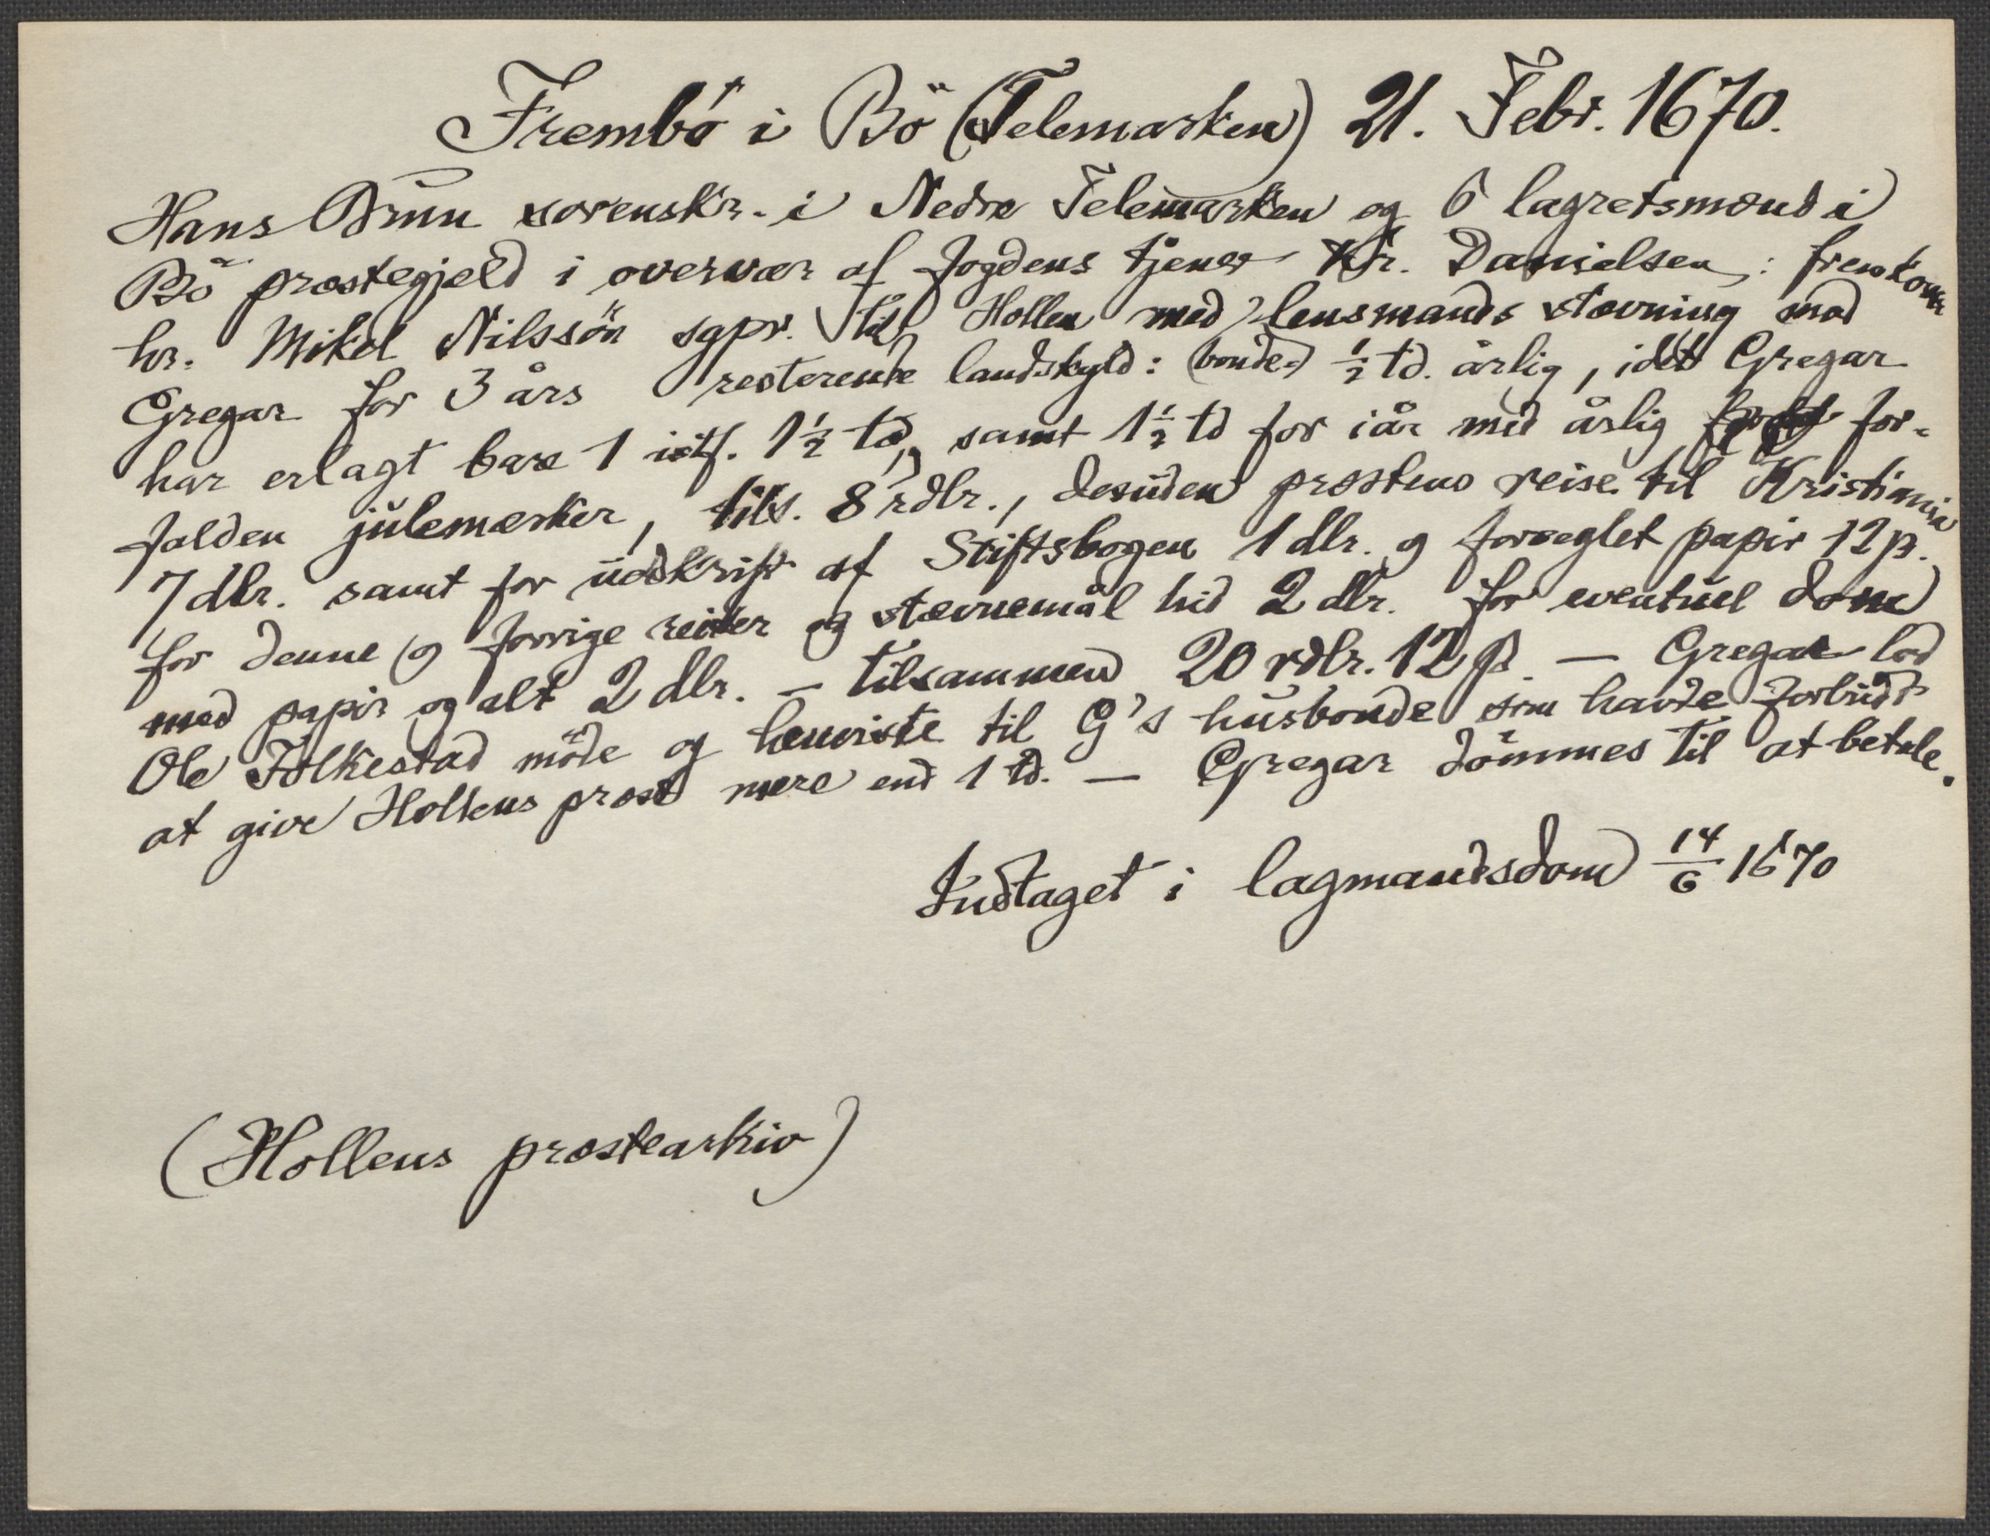 Frembö i Bö (Telemarken) 21. Febr. 1670.
Hans Brun sorenskr. i Nedre Telemarken og 6 lagretsmænd i
Bö præstegjeld i overvær af fogdens tjener Kr. Danielsen: fremkom
hr. Mikel Nilssön sgpr. til Hollen med lensmands stævning mod
Gregar for 3 års resterende landskyld: (bonde) ½ td. årlig, idet Gregar
har erlagt bare 1 istf. 1½ td, samt 1½ td for iår med årlig for-
falden julemærker, tils. 8 rdlr., desuden prostens reise til Kristiania
7 dlr. samt for udskrift af Stiftsbogen 1 dlr. og forseglet papir 12 β.
for denne og forrige reiser og stævnemål hid 2 dlr. for eventuel dom
med papir og alt 2 dlr. — tilsammen 20 rdlr. 12 β — Gregar lod
Ole Folkestad möde og henviste til G's husbonde som havde forbudt
at give Hollens prost mere end 1 td. — Gregar dömmes til at betale.
Indtaget i lagmandsdom 14/6 1670
(Hollens prostearkiv)